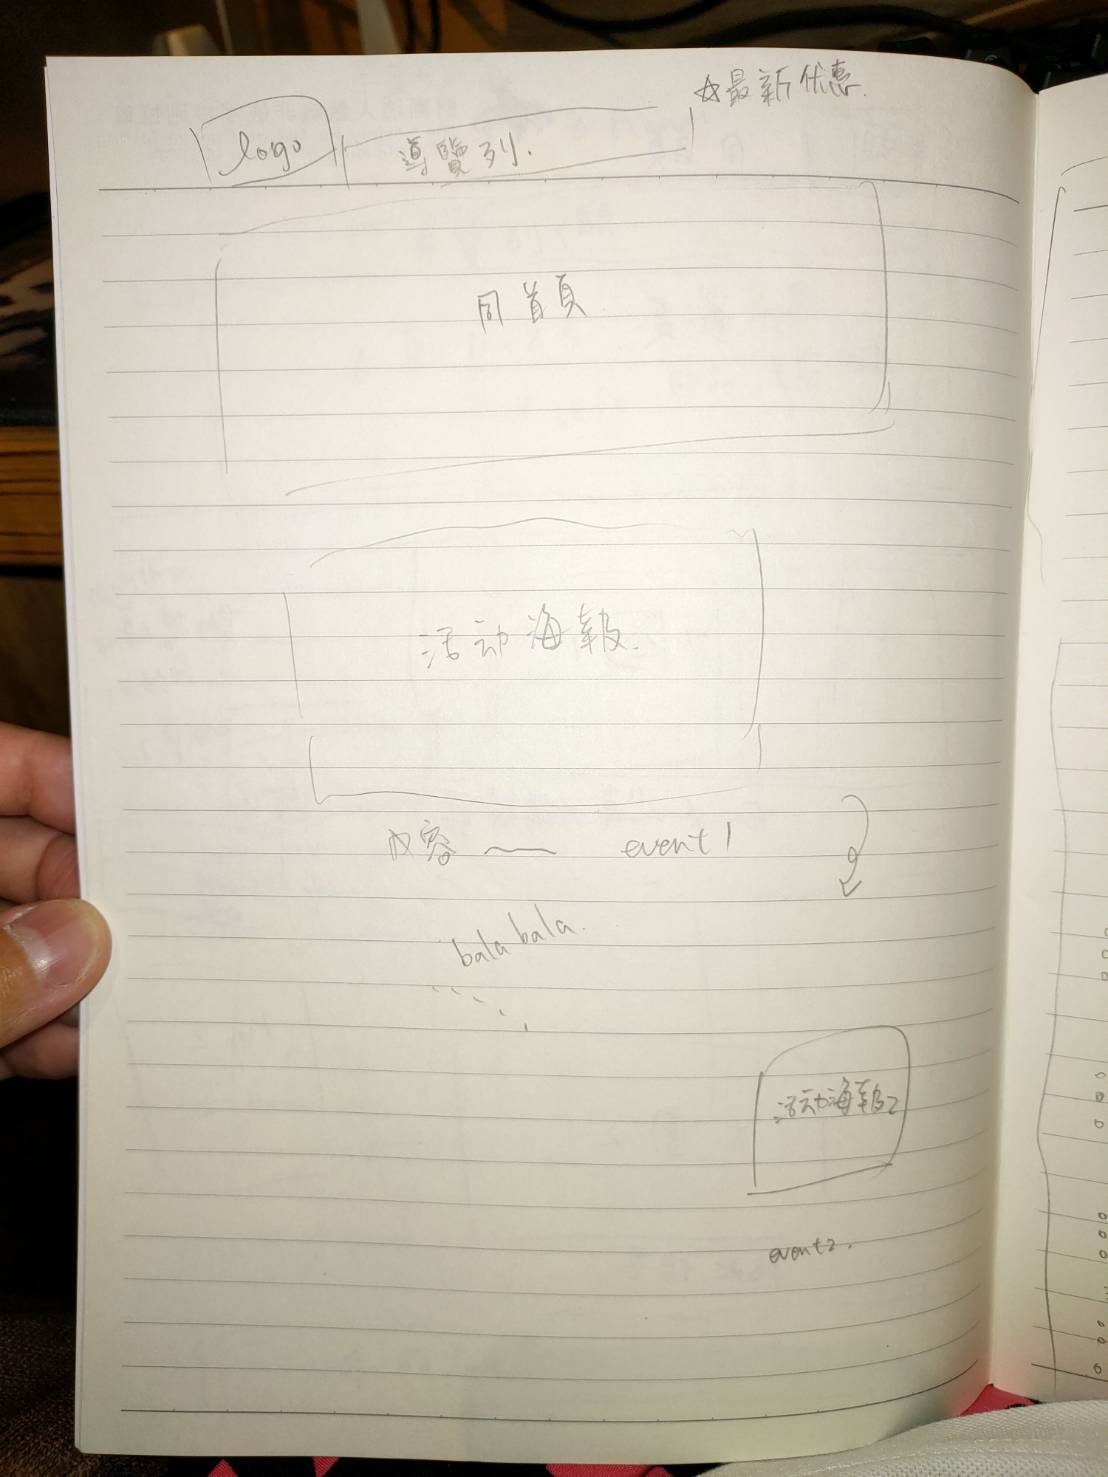 ☆最新优惠.
logo
導覽列.
同首頁
活动海報.
内容 —— event1
bala bala.
活动海報2
event2.